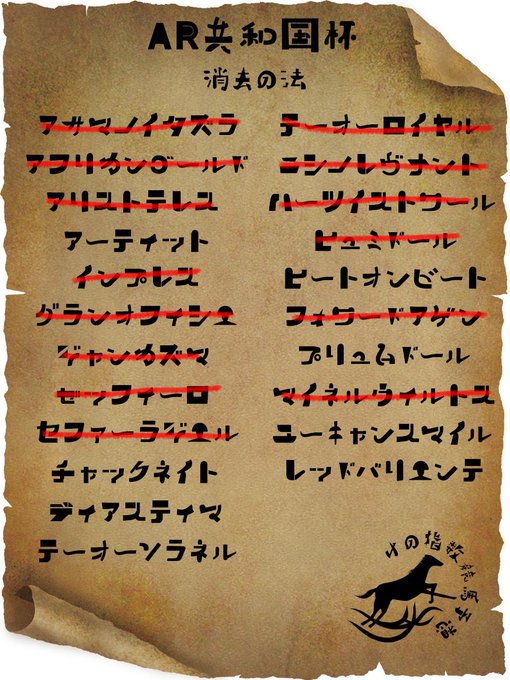 AR共和国杯
消去の法
アサマノイタズラ
アフリカンゴールド
アリストテレス
アーティット
インプレス
グランオフィシエ
ジャンカズマ
ゼッフィーロ
セファーラジエル
チャックネイト
ディアスティマ
テーオーソラネル
テーオーロイヤル
ニシノレヴナント
ハーツイストワール
ヒュミドール
ヒートオンビート
フォワードアゲン
プリュムドール
マイネルウィルトス
ユーキャンスマイル
レッドバリエンテ
の指数競馬予想